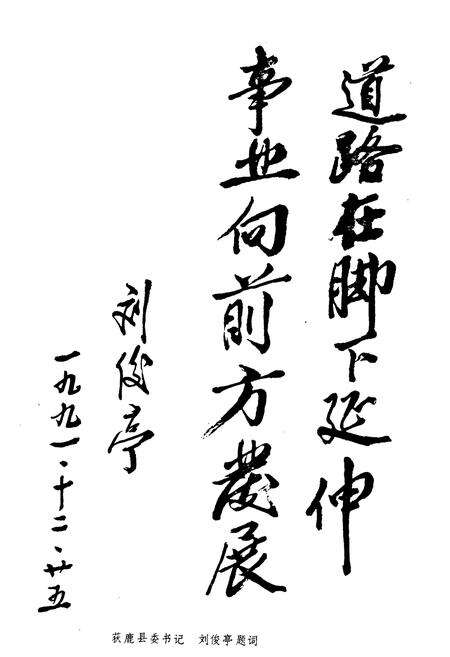 道路在脚下延伸
事业向前方發展
刘俊亭
一九九一、十二、廿五
获鹿县委书记 刘俊亭题词